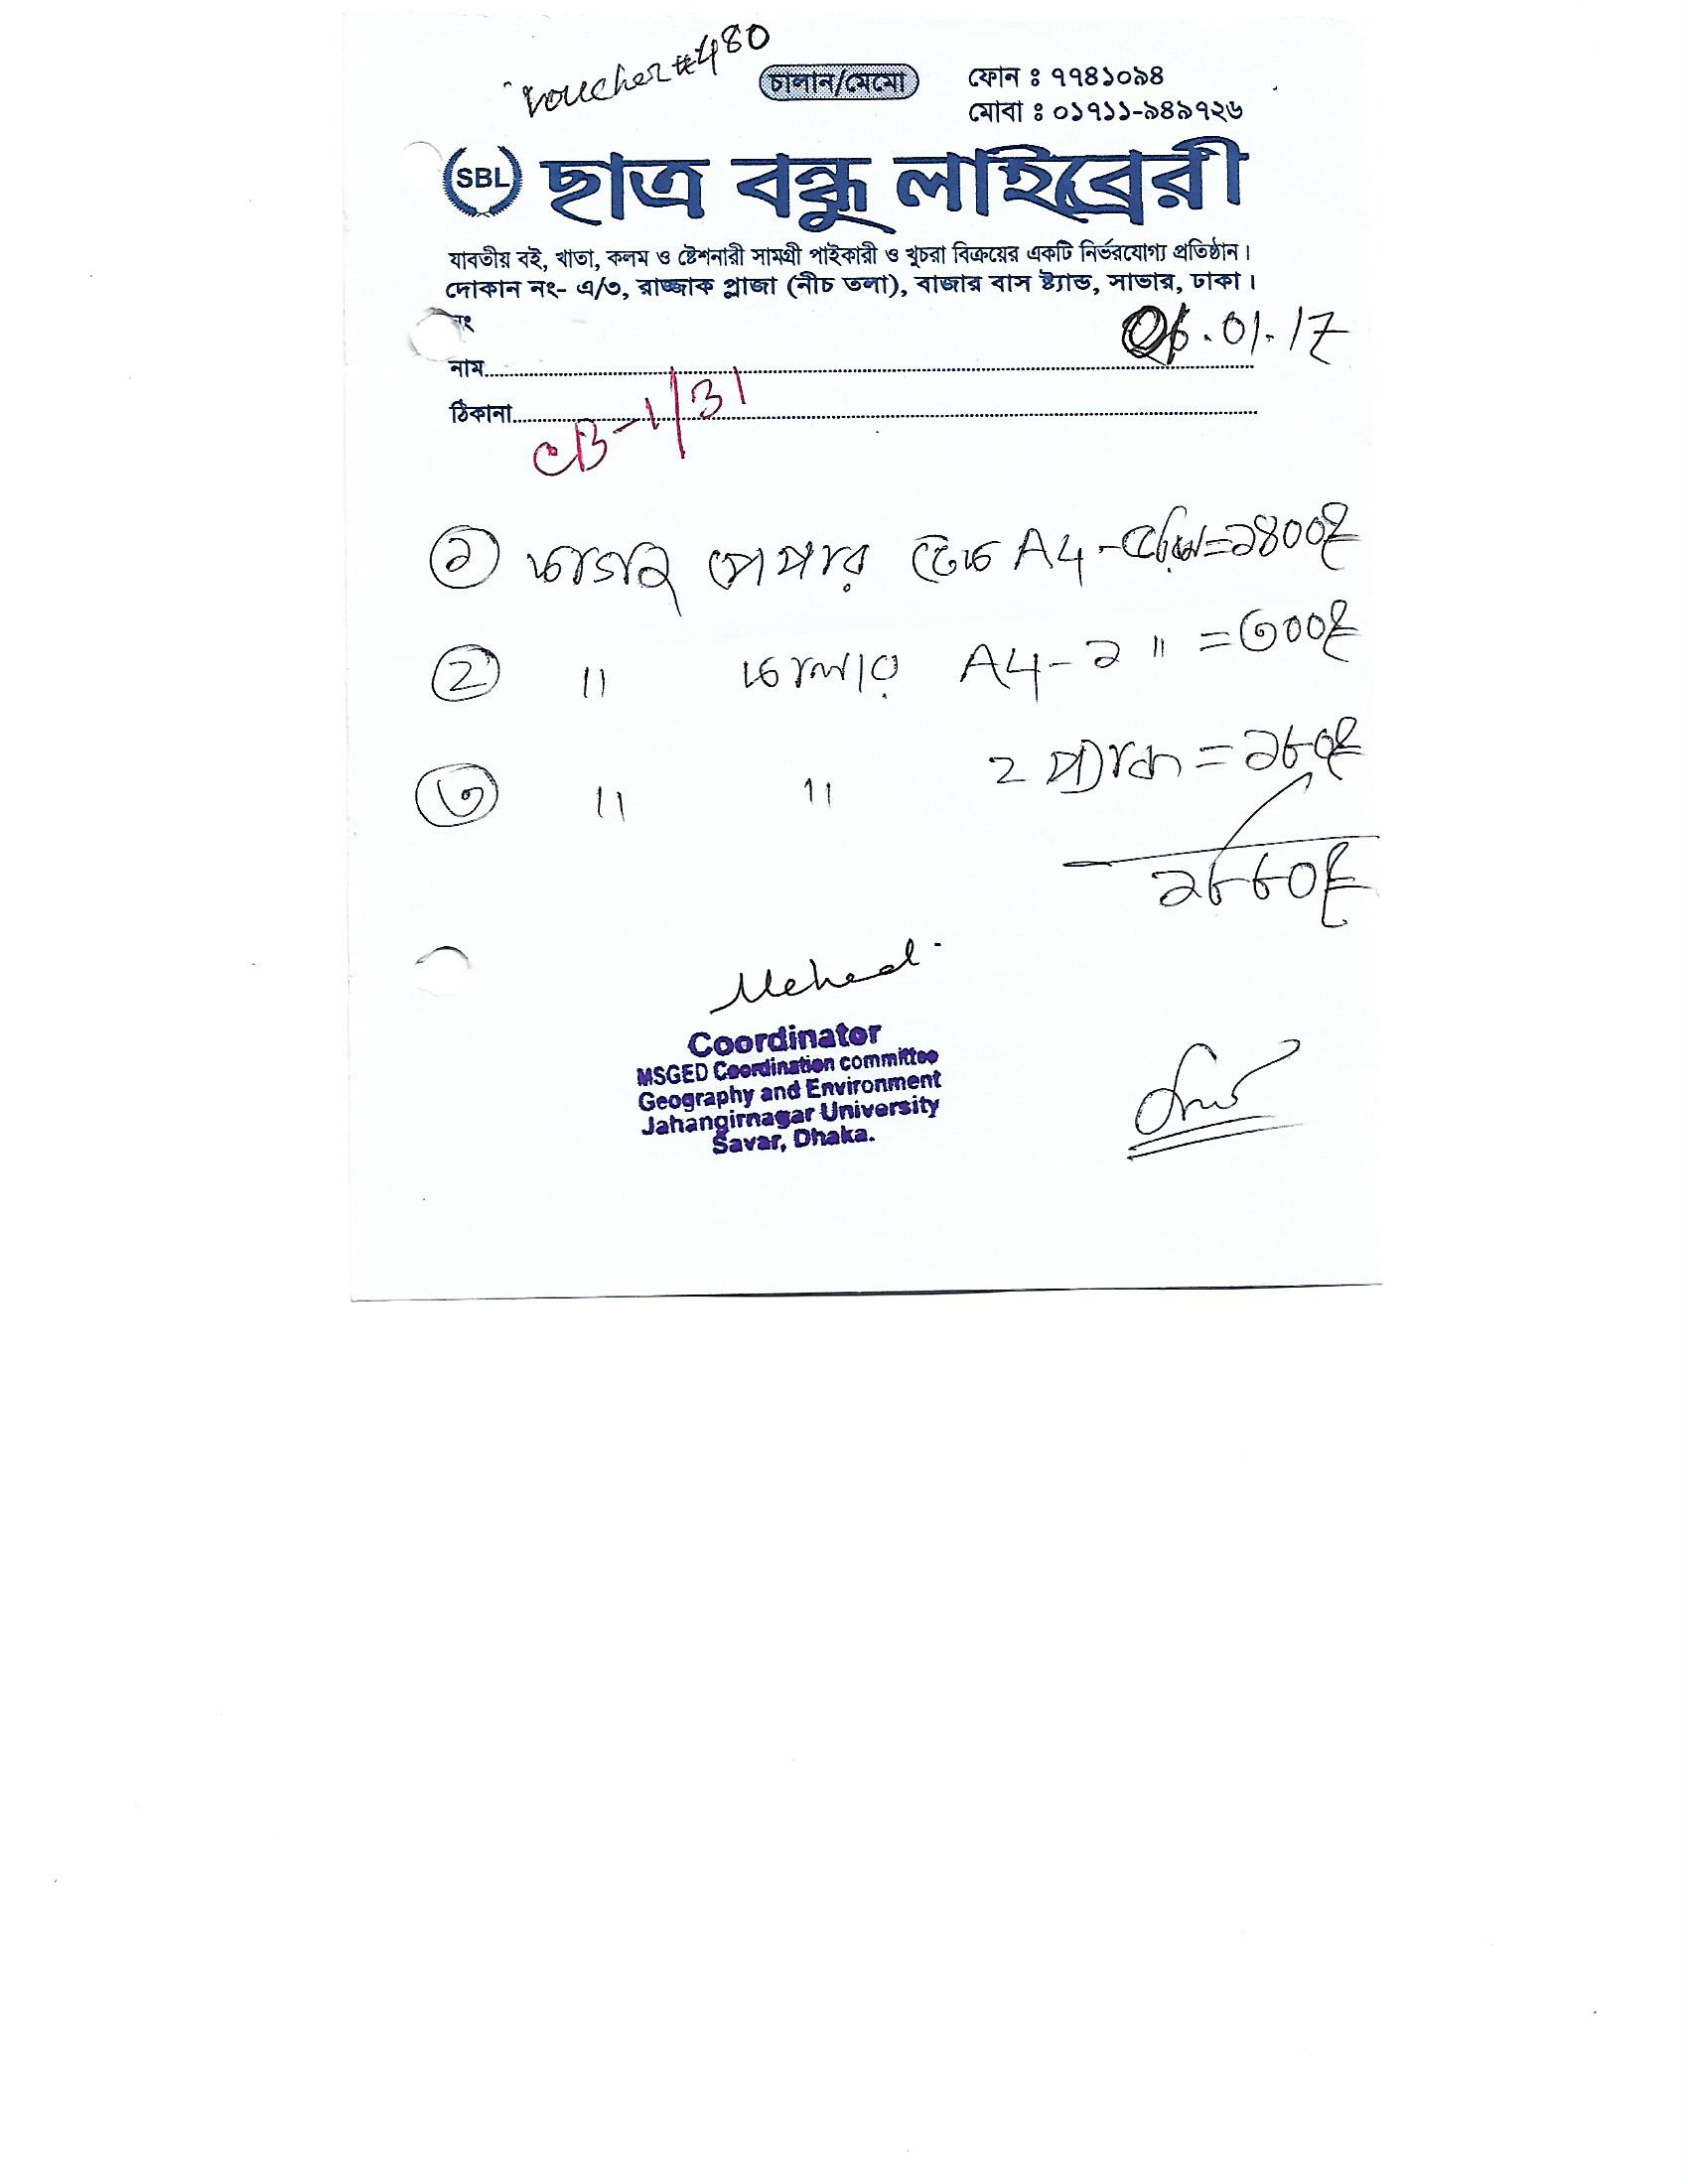 Voucher #480
চালান/মেমো
ফোন ঃ ৭৭৪১০৯৪
মোবা ঃ ০১৭১১-৯৪৯৭২৬
SBL ছাত্র বন্ধু লাইব্রেরী
যাবতীয় বই, খাতা, কলম ও ষ্টেশনারী সামগ্রী পাইকারী ও খুচরা বিক্রয়ের একটি নির্ভরযোগ্য প্রতিষ্ঠান।
দোকান নং- এ/৩, রাজ্জাক প্লাজা (নীচ তলা), বাজার বাস ষ্ট্যান্ড, সাভার, ঢাকা।
নং
.01.17
নাম
ঠিকানা
CB-1/31
১ পেপার A4- =১৪০০/=
2 " A4- ১ " =৩০০/=
৩ " " 2 প্যাকে =১৮০/=
১৮৮০/=
Mehedi
Coordinator
MSGED Coordination committee
Geography and Environment
Jahangirnagar University
Savar, Dhaka.